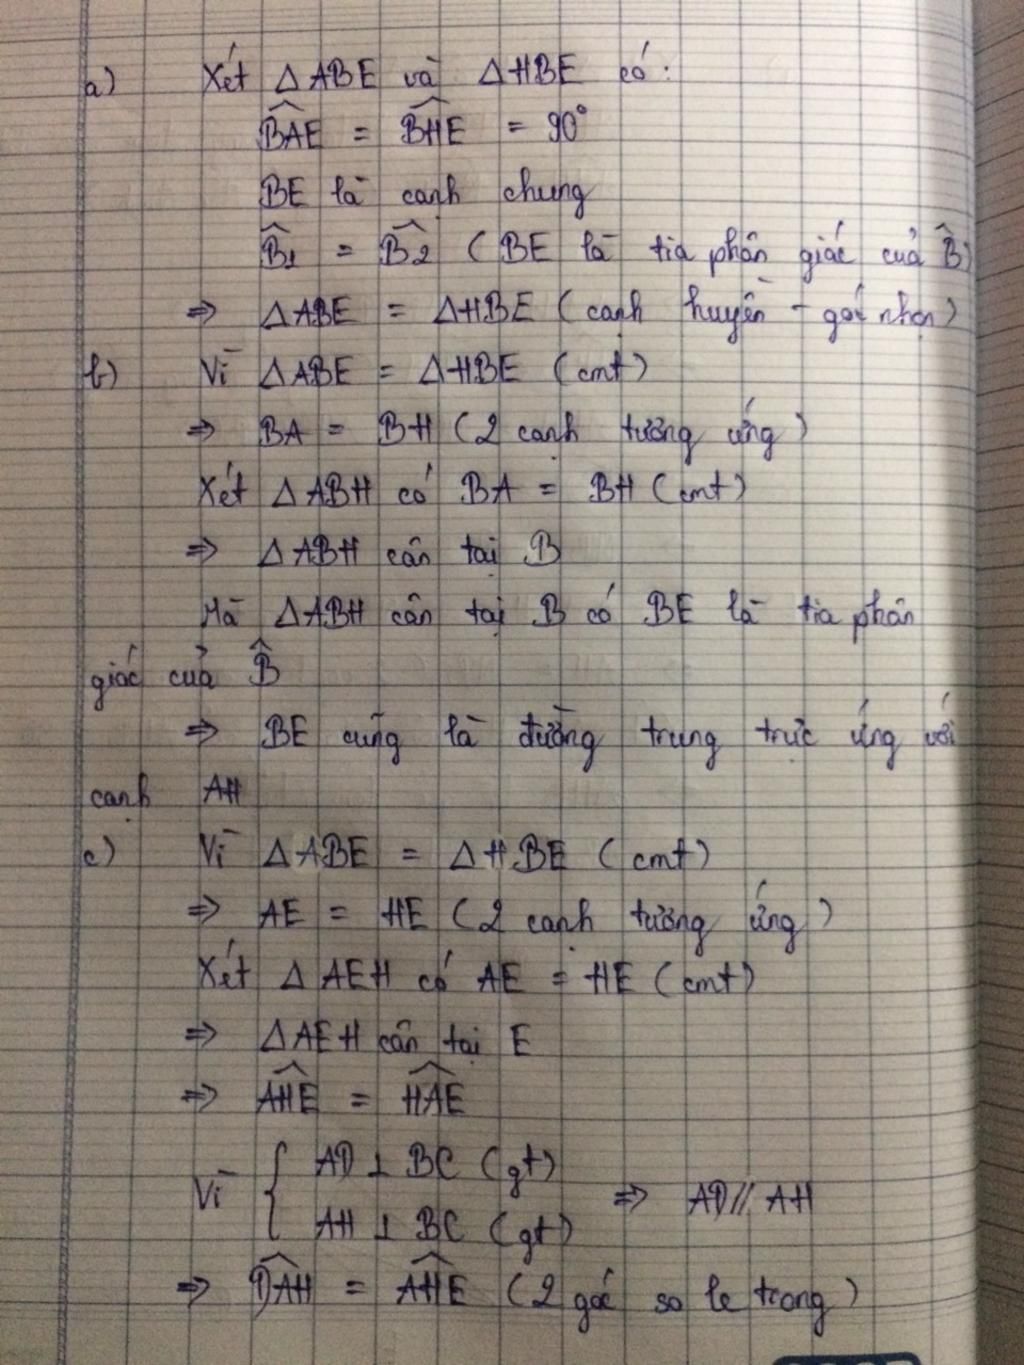 a) Xét ΔABE và ΔHBE có:
\widehat{BAE} = \widehat{BHE} = 90°
BE là cạnh chung
\widehat{B_1} = \widehat{B_2} (BE là tia phân giác của \widehat{B})
=> ΔABE = ΔHBE (cạnh huyền - góc nhọn)
b) Vì ΔABE = ΔHBE (cmt)
=> BA = BH (2 cạnh tương ứng)
Xét ΔABH có BA = BH (cmt)
=> ΔABH cân tại B
Mà ΔABH cân tại B có BE là tia phân
giác của \widehat{B}
=> BE cũng là đường trung trực ứng với
cạnh AH
c) Vì ΔABE = ΔHBE (cmt)
=> AE = HE (2 cạnh tương ứng)
Xét ΔAEH có AE = HE (cmt)
=> ΔAEH cân tại E
=> \widehat{AHE} = \widehat{HAE}
Vì { AD ⊥ BC (gt)
AH ⊥ BC (gt) => AD // AH
=> \widehat{DAH} = \widehat{AHE} (2 góc so le trong)